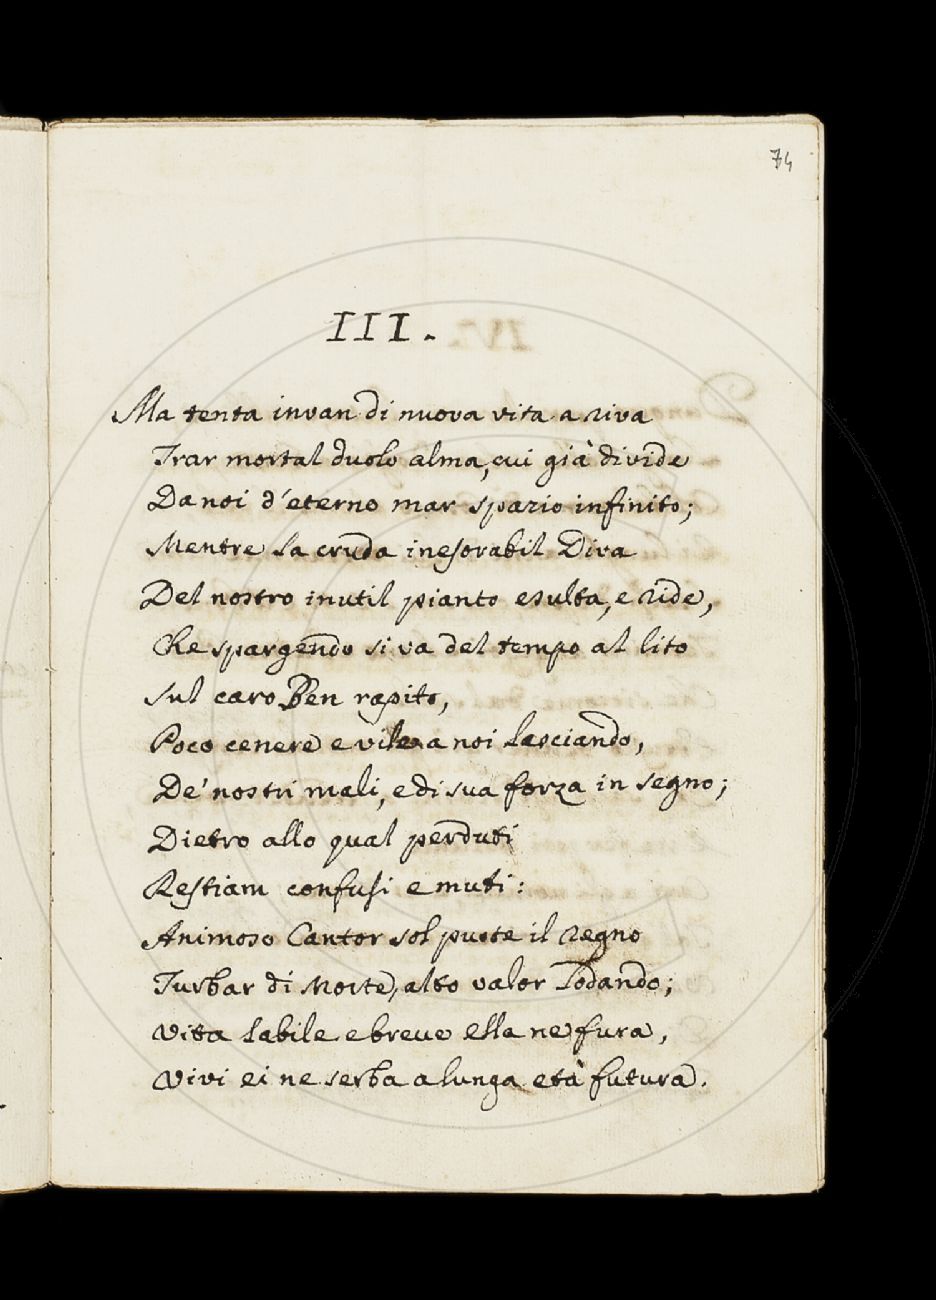 74
III.
Ma tenta invan di nuova vita a riva
Trar mortal duolo alma, cui già divide
Da noi d'eterno mar spazio infinito;
Mentre la cruda inesorabil Diva
Del nostro inutil pianto esulta, e ride,
Che spargendo si va del tempo al lito
Sul caro Ben rapito,
Poco cenere e vile a noi lasciando,
De' nostri mali, e di sua forza in segno;
Dietro allo qual perduti
Restiam confusi e muti:
Animoso Cantor sol puote il Regno
Turbar di Morte, alto valor lodando;
Vita labile e breve ella ne fura,
Vivi ei ne serba a lunga età futura.